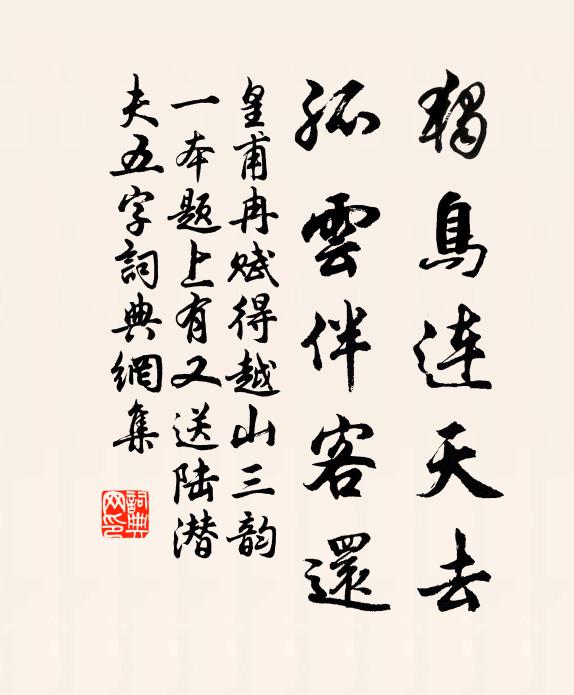 獨鳥連天去
孤雲伴客還
皇甫冉賦得越山三韵
一本題上有又送陆潜
夫五字詞典網集
詞典网印